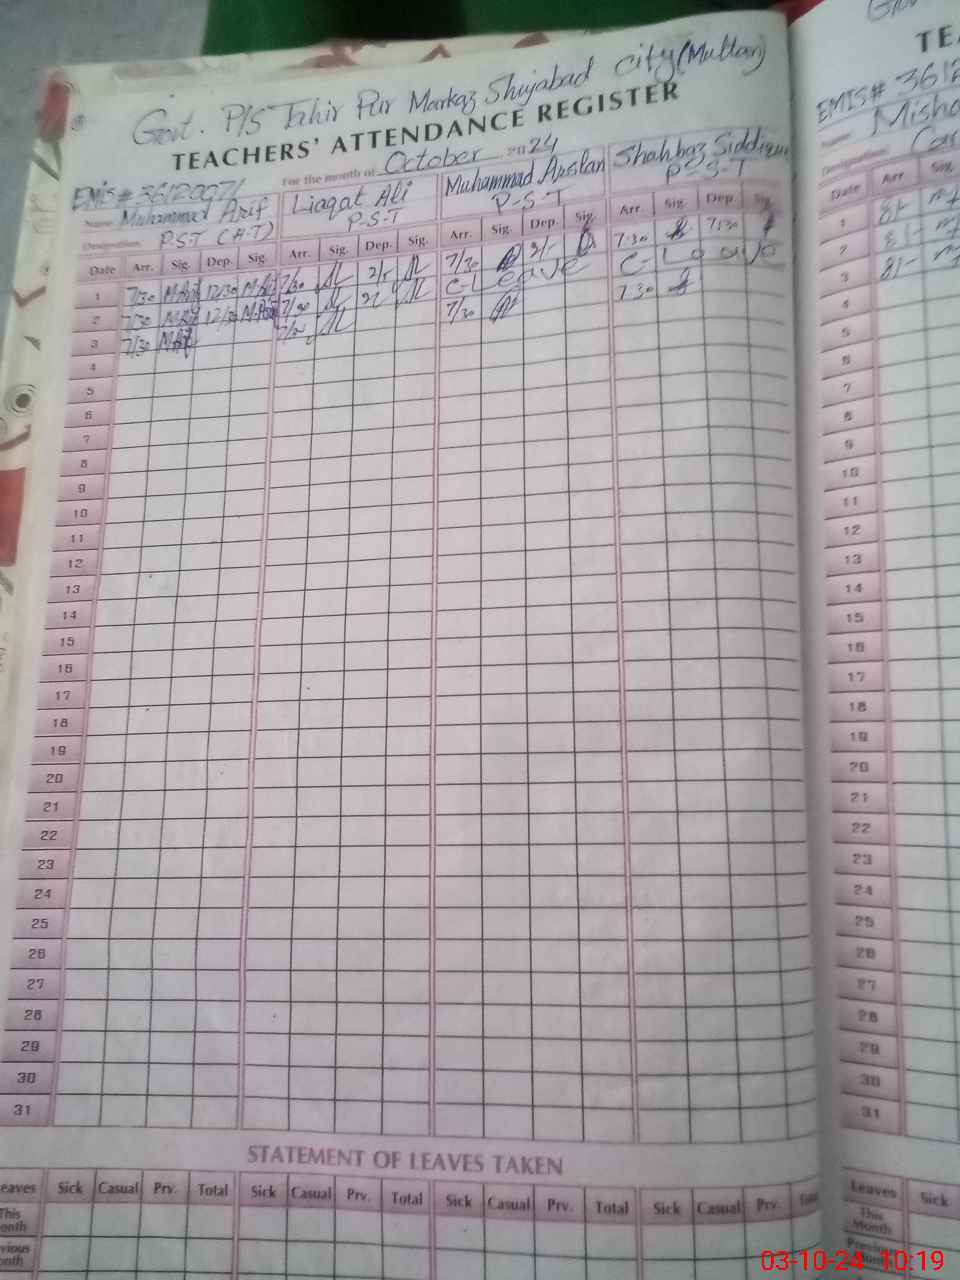 Govt. P/S Tahir Pur Markaz Shujabad City (Multan)
TEACHERS' ATTENDANCE REGISTER
For the month of October 2024
EMIS # 3612007
Name Muhammad Arif Liaqat Ali Muhammad Arslan Shahbaz Siddique
Designation P.S.T (H.T) P-S-T P-S-T P-S-T
Date Arr. Sig. Dep. Sig. Arr. Sig. Dep. Sig. Arr. Sig. Dep. Sig. Arr. Sig. Dep. Sig.
1 7/30 M.Arif 12/30 M.Arif 7/30 2/- 7/30 2/- 7:30 7:30
2 7/30 M.Arif 12/30 M.Arif 7/30 2/- C-Leave C-Leave
3 7/30 M.Arif 7/30 7/30 7:30
4
5
6
7
8
9
10
11
12
13
14
15
16
17
18
19
20
21
22
23
24
25
26
27
28
29
30
31
STATEMENT OF LEAVES TAKEN
Leaves Sick Casual Prv. Total Sick Casual Prv. Total Sick Casual Prv. Total Sick Casual Prv. Total
This Month
Previous Month
EMIS # 3612
Name
Designation
Date Arr. Sig.
1 8/-
2 8/-
3 8/-
4
5
6
7
8
9
10
11
12
13
14
15
16
17
18
19
20
21
22
23
24
25
26
27
28
29
30
31
Leaves Sick
This Month
Previous Month
03-10-24 10:19